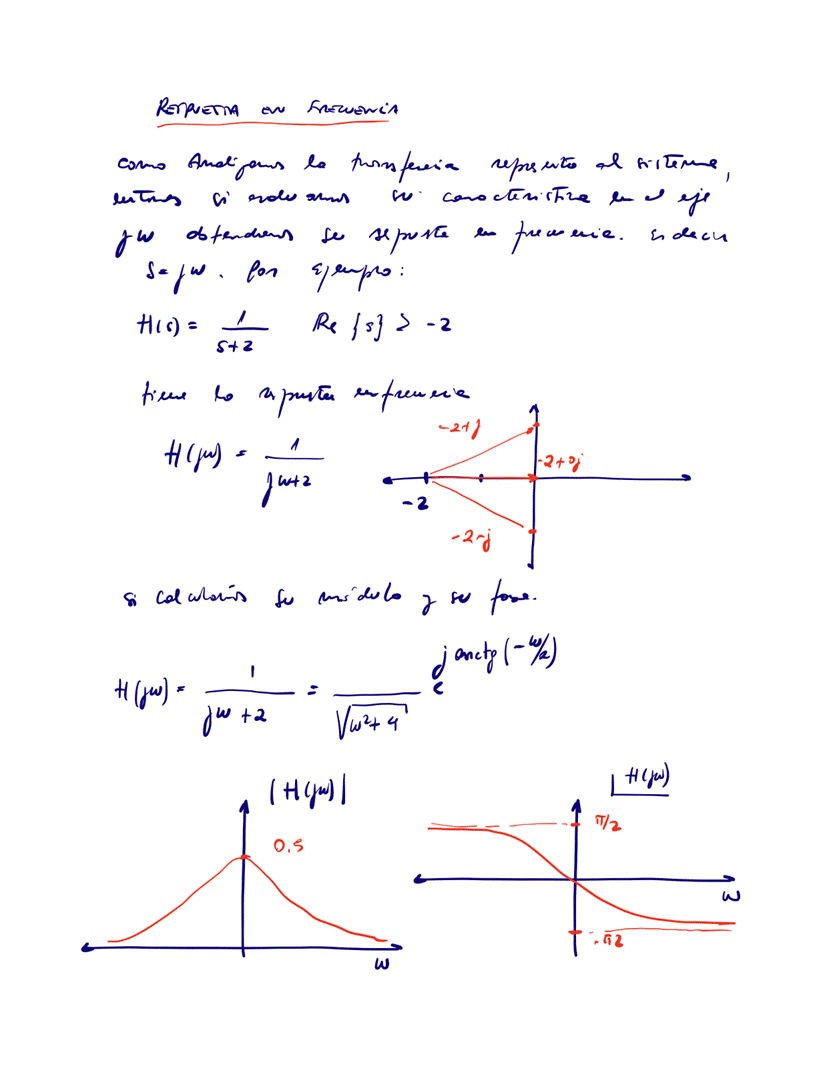 RESPUESTA EN FRECUENCIA
como Analizamos la transferencia represento al sistema,
entonces si evaluamos su caracteristica en el eje
jω obtendremos su respuesta en frecuencia. es decir
s=jω. Por Ejemplo:
H(s) = 1/(s+2) Re {s} > -2
tiene la respuesta en frecuencia
H(jω) = 1/(jω+2)
-2+j
-2+0j
-2
-2-j
si calculamos su módulo y su fase.
H(jω) = 1/(jω+2) = /√(ω²+4) e^(j arctg(-ω/2))
|H(jω)|
0,5
ω
∠H(jω)
π/2
ω
-π2